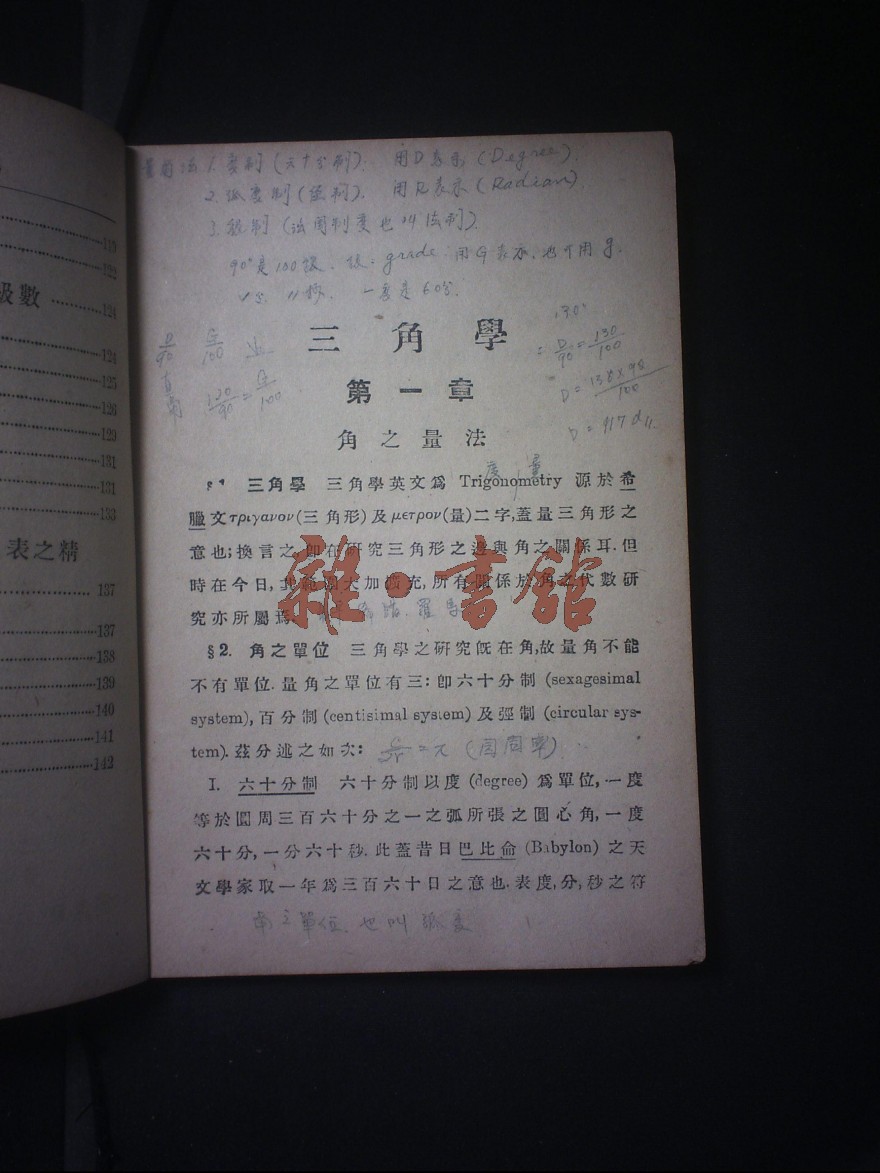 級數
表之精
119
122
124
124
125
126
129
131
131
133
137
137
138
139
140
141
142
1. 度制 (六十分制). 用D表示 (Degree).
2. 弧度制 (弳制). 用R表示 (Radian).
3. 級制 (法國制度也叫法制)
90°是100級. 級: grade 用G表示. 也可用 g.
一度是60分.
D/90 G/100
130/90 = G/100
130°
= D/90 = 130/100
D = 130×90/100
D = 117 d
三角學
第一章
角之量法
度 量
§1 三角學 三角學英文爲 Trigonometry 源於希
臘文τριγανον(三角形)及μετρον(量)二字,蓋量三角形之
意也;換言之,卽在研究三角形之邊與角之關係耳.但
時在今日,其範圍大加擴充,所有關係於角之代數研
究亦所屬焉.
雜·書館
§2. 角之單位 三角學之研究旣在角,故量角不能
不有單位.量角之單位有三:卽六十分制 (sexagesimal
system),百分制 (centisimal system) 及弳制 (circular sys-
tem).茲分述之如次:
= π (圓周率)
I. 六十分制 六十分制以度 (degree) 爲單位,一度
等於圓周三百六十分之一之弧所張之圓心角,一度
六十分,一分六十秒.此蓋昔日巴比侖 (Babylon) 之天
文學家取一年爲三百六十日之意也.表度,分,秒之符
單位. 也叫弧度